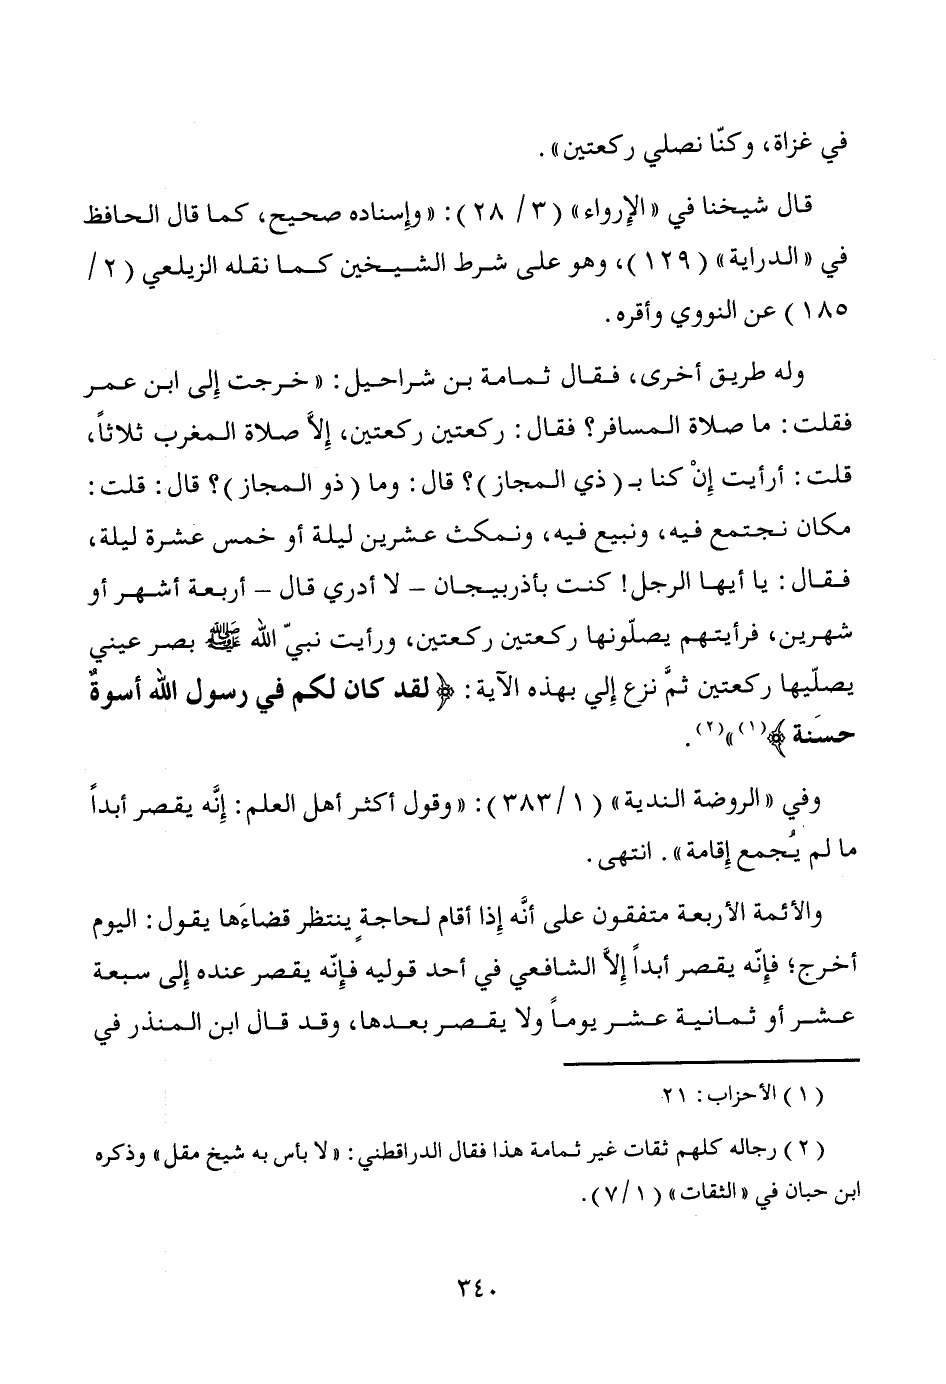 في غزاة، وكنّا نصلي ركعتين».
قال شيخنا في «الإرواء» (٣/ ٢٨): «وإسناده صحيح، كما قال الحافظ
في «الدراية» (١٢٩)، وهو على شرط الشيخين كما نقله الزيلعي (٢/
١٨٥) عن النووي وأقره.
وله طريق أخرى، فقال ثمامة بن شراحيل: «خرجت إلى ابن عمر
فقلت: ما صلاة المسافر؟ فقال: ركعتين ركعتين، إلاَّ صلاة المغرب ثلاثاً،
قلت: أرأيت إنْ كنا بـ (ذي المجاز)؟ قال: وما (ذو المجاز)؟ قال: قلت:
مكان نجتمع فيه، ونبيع فيه، ونمكث عشرين ليلة أو خمس عشرة ليلة،
فقال: يا أيها الرجل! كنت بأذربيجان – لا أدري قال – أربعة أشهر أو
شهرين، فرأيتهم يصلّونها ركعتين ركعتين، ورأيت نبيّ الله ﷺ بصر عيني
يصلّيها ركعتين ثمَّ نزع إلي بهذه الآية: ﴿لقد كان لكم في رسول الله أسوةٌ
حسَنة﴾(١)»(٢).
وفي «الروضة الندية» (١/٣٨٣): «وقول أكثر أهل العلم: إنَّه يقصر أبداً
ما لم يُجمع إقامة». انتهى.
والأئمة الأربعة متفقون على أنَّه إذا أقام لحاجةٍ ينتظر قضاءَها يقول: اليوم
أخرج؛ فإنّه يقصر أبداً إلاَّ الشافعي في أحد قوليه فإنّه يقصر عنده إلى سبعة
عشر أو ثمانية عشر يوماً ولا يقصر بعدها، وقد قال ابن المنذر في
(١) الأحزاب: ٢١
(٢) رجاله كلهم ثقات غير ثمامة هذا فقال الدراقطني: «لا بأس به شيخ مقل» وذكره
ابن حبان في «الثقات» (٧/١).
٣٤٠